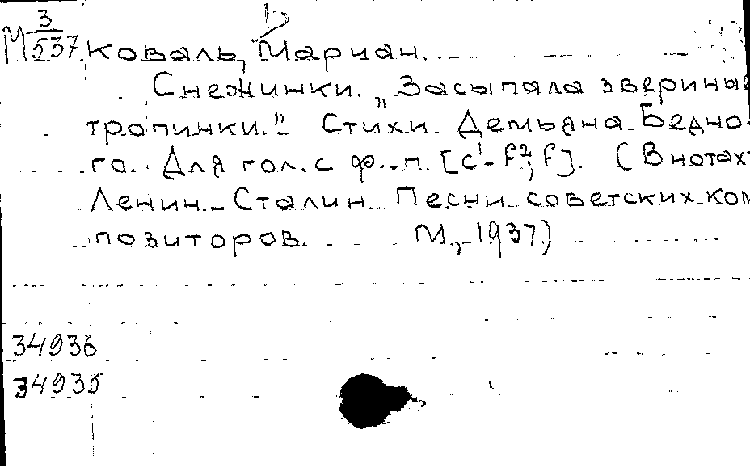 М 3/537 Коваль, Мариан.
Снежинки. „Засыпала звериные
тропинки." Стихи Демьяна Бедно-
го. Для гол. с ф.-п. [c¹-f²; f]. (В нотах:
Ленин. Сталин. Песни советских ком
позиторов. М., 1937.)
34936
34935